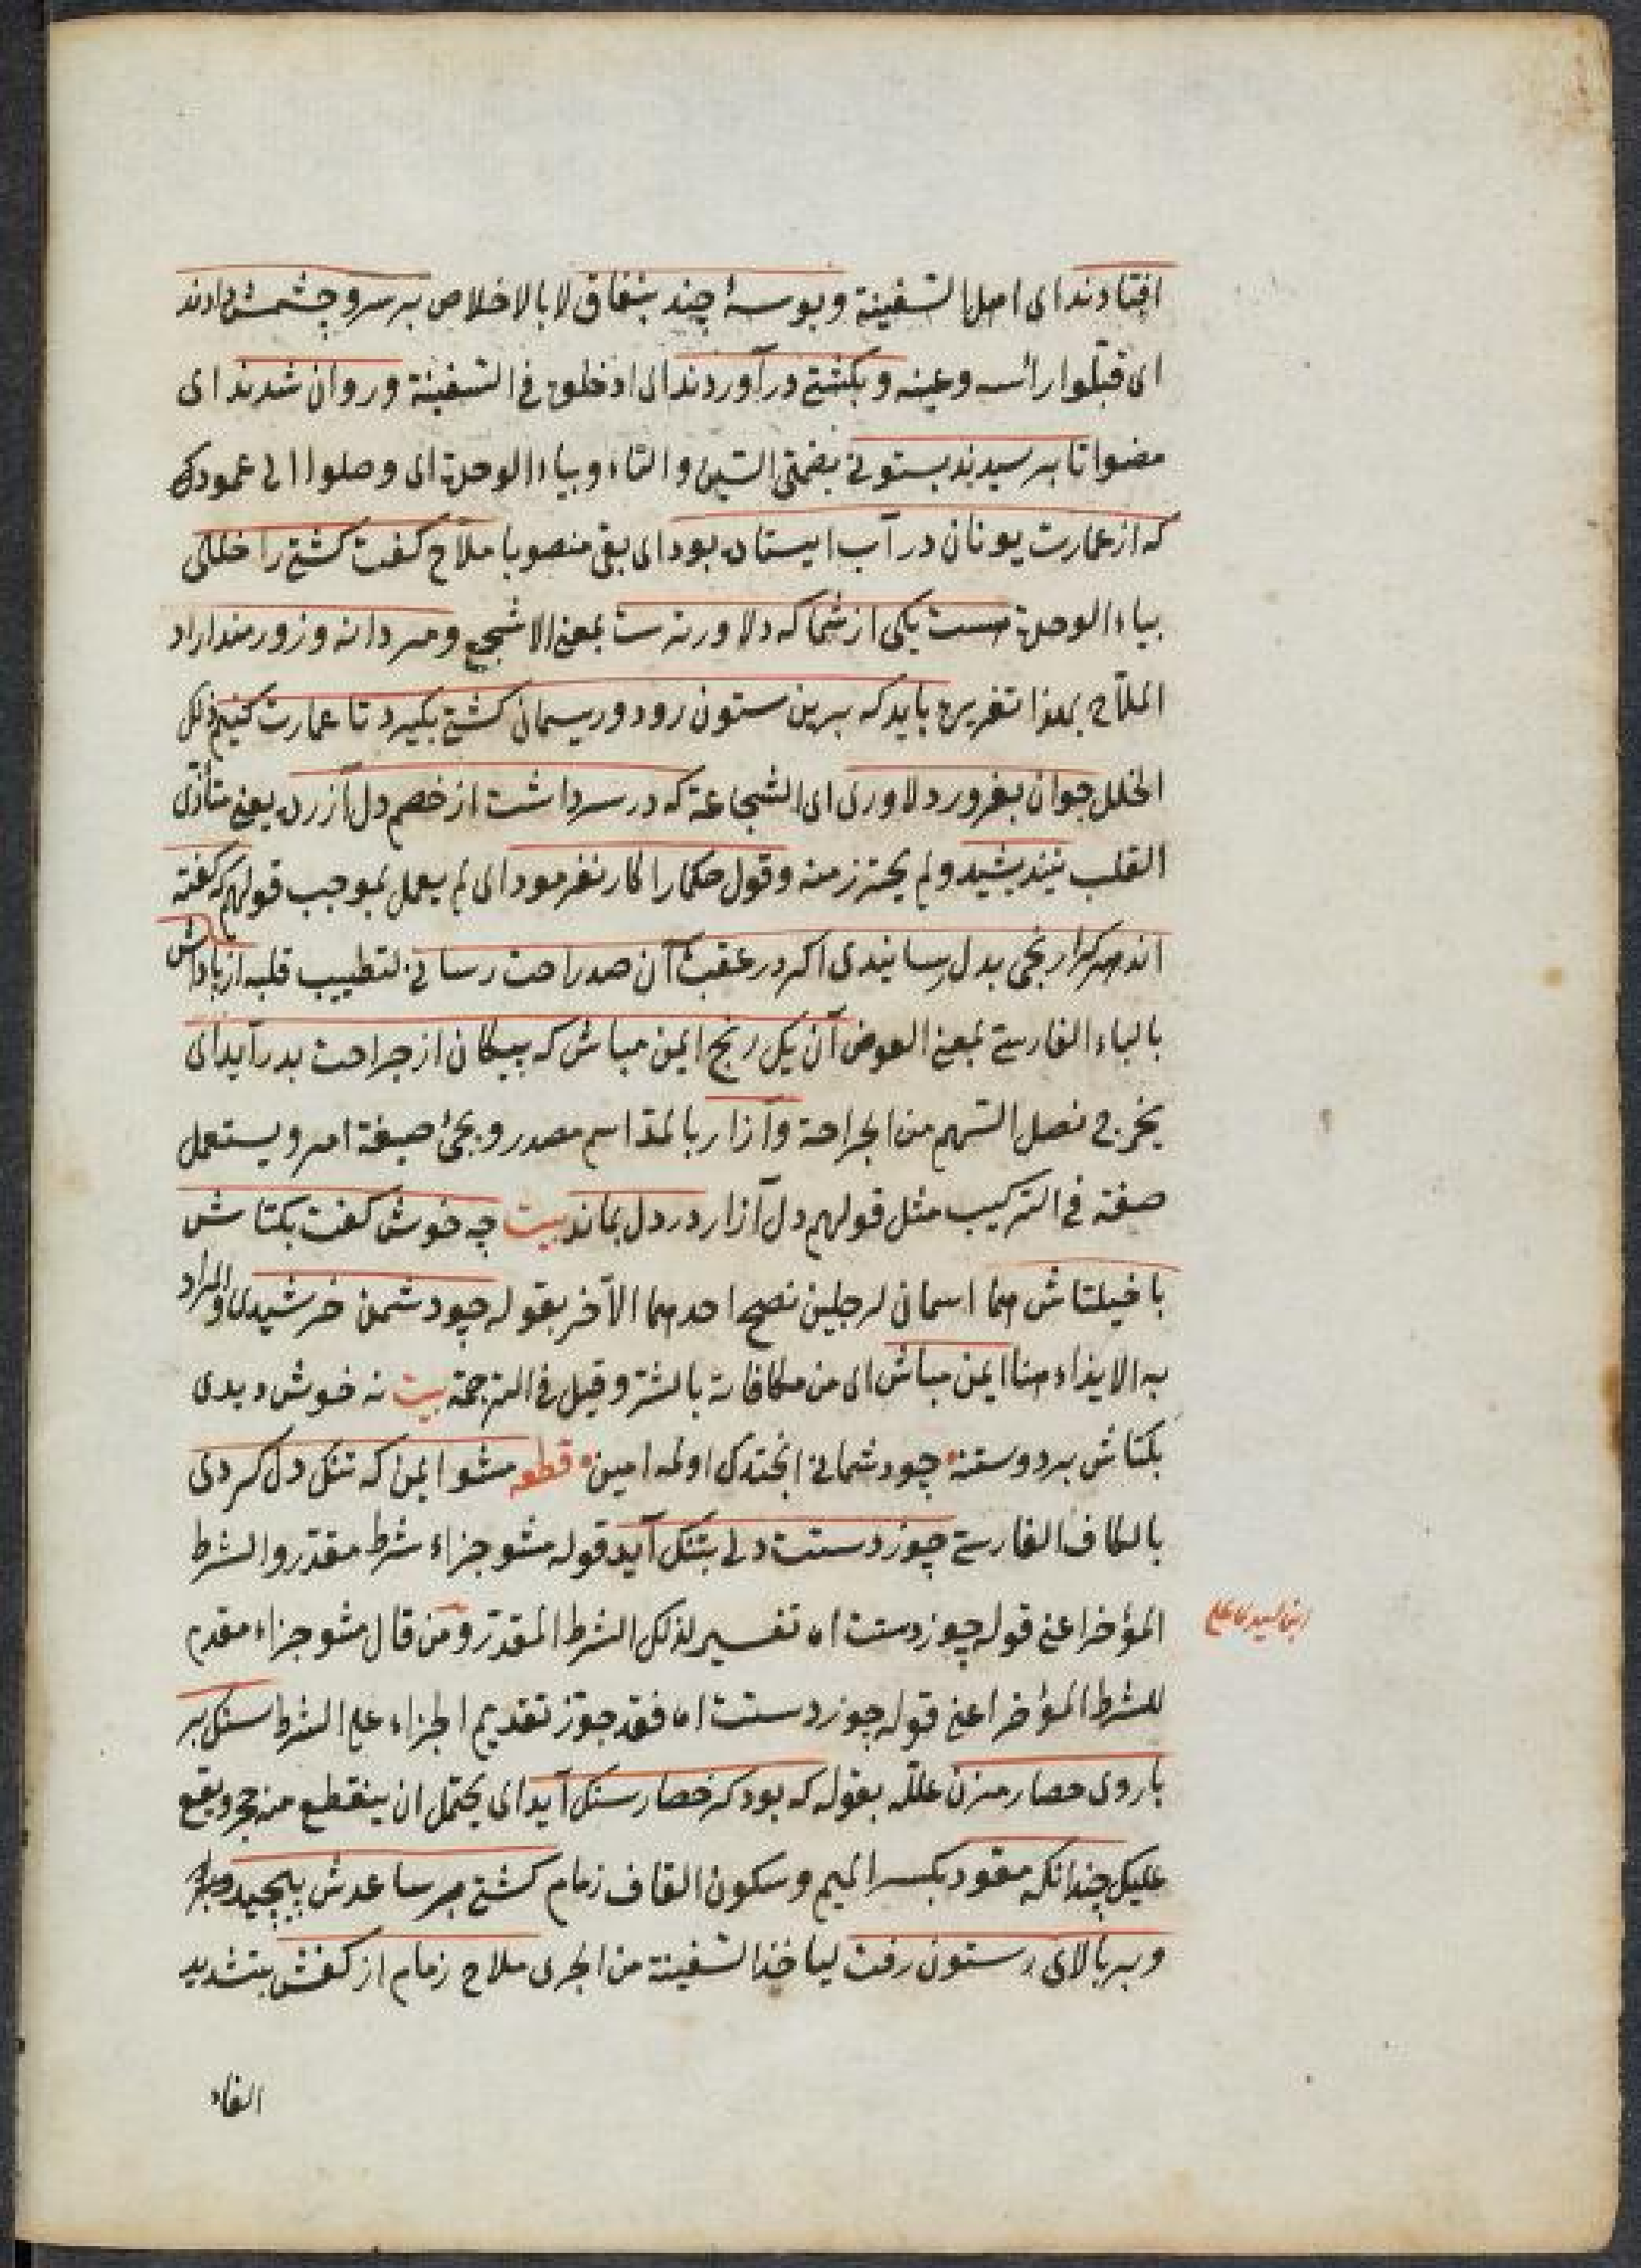 افتادند ای اهل السفینة وبوسهٔ چند بنفاق لا بالاخلاص بر سر و چشمش دادند
ای قبّلوا رأسه وعینه و بکشتی در آوردند ای ادخلوه فی السفینة و روان شدند ای
مضوا تا برسیدند بستونی بضمّتی السین والتاء وبیاء الوحدة ای وصلوا الی عمود
که از عمارت یونان در آب ایستاده بود ای بقی منصوبا ملاح گفت کشتی را خللی
بیاء الوحدة هست یکی از شما که دلاورترست بمعنی الاشجع ومردانه وزورمند اراد
الملّاح بهذا تغریره باید که برین ستون رود وریسمان کشتی بگیرد تا عمارت کنیم ذلک
الخلل جوان بغرور دلاوری ای الشجاعة که در سر داشت از خصم دل آزرده یعنی متأذی
القلب نیندیشید ولم یحترز منه وقول حکما را کار نفرمود ای لم یعمل بموجب قولهم که گفته
اند هر کرا رنجی بدل رسانیدی اکر در عقب آن صد راحت رسانی لتطییب قلبه از پاداش
بالباء الفارسی بمعنی العوض آن یک رنج ایمن مباش که پیکان از جراحت بدر آید ای
یخرج نصل السهم من الجراحة وآزار بالمدّ اسم مصدر ویجئ صیغة امر ویستعمل
صفة فی الترکیب مثل قولهم دل آزار در دل بماند بیت چه خوش گفت بکتاش
با خیلتاش هما اسمان لرجلین نصح احدهما الآخر بقوله چو دشمن خرشیدی والمراد
به الایذاء هنا ایمن مباش ای من مکافاته بالشرّ وقیل فی الترجمة بیت نه خوش دیدی
بکتاش بر دوستنه چو دشمانی انجتدک اولمه امین قطعه مشو ایمن که تنک دل کردی
بالکاف الفارسی چون ز دستت دلی بتنک آید قوله مشو جزاء شرط مقدر والشرط
المؤخر اعنی قوله چون ز دستت اه تفسیر لذلک الشرط المقدّر ومن قال مشو جزاء مقدم
للشرط المؤخر اعنی قوله چون ز دستت اه فقد جوّز تقدیم الجزاء علی الشرط سنک بر
باروی حصار مزن علله بقوله که بود کز حصار سنک آید ای یحتمل ان ینقطع منه حجر ویقع
علیک چندانکه مقود بکسر المیم وسکون القاف زمام کشتی بر ساعدش پیچید
وبر بالای ستون رفت لیاخذ السفینة من الجری ملاح زمام از کفش بتشدید
الفاء